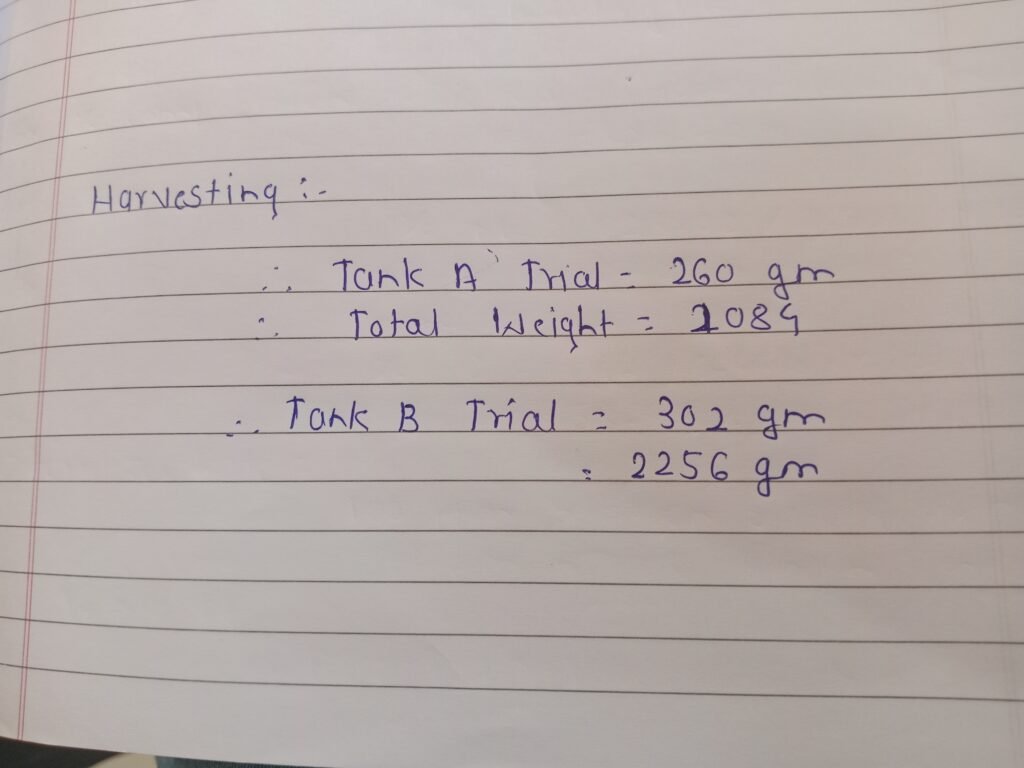 Harvesting :-
∴ Tank A Trial = 260 gm
∴ Total Weight = 2084
∴ Tank B Trial = 302 gm
= 2256 gm